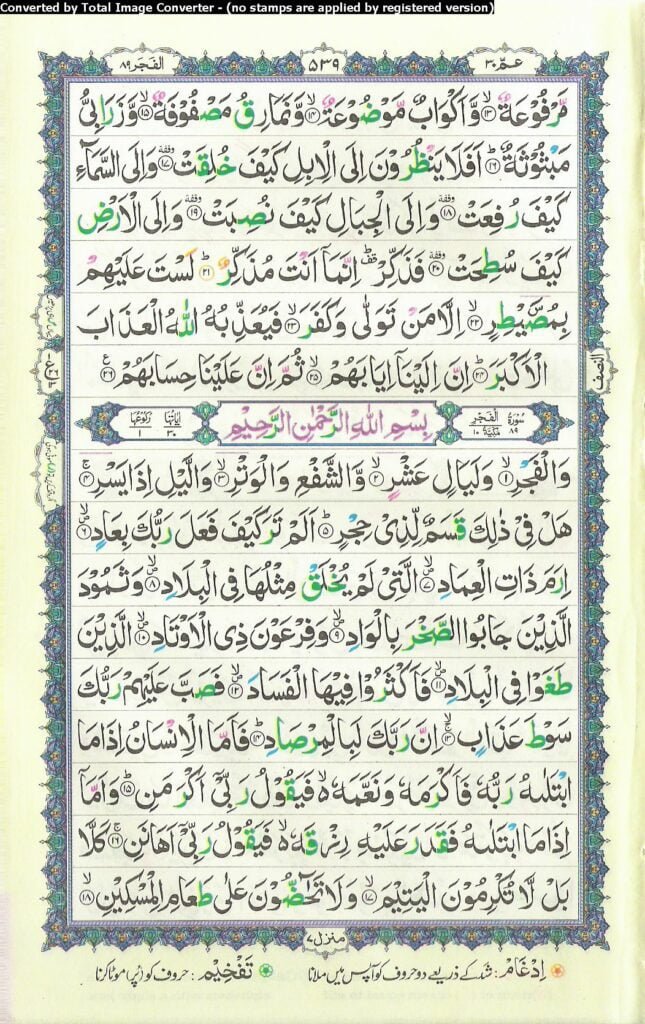 Converted by Total Image Converter - (no stamps are applied by registered version)
عـمّ ٣٠
٥٣٩
الفجر ٨٩
مَّرْفُوْعَةٌ ۙ‏﴿۱۳﴾ وَّاَكْوَابٌ مَّوْضُوْعَةٌ ۙ‏﴿۱۴﴾ وَّنَمَارِقُ مَصْفُوْفَةٌ ۙ‏﴿۱۵﴾ وَّزَرَابِىُّ
مَبْثُوْثَةٌ ؕ‏﴿۱۶﴾ اَفَلَا يَنْظُرُوْنَ اِلَى الْاِبِلِ كَيْفَ خُلِقَتْ وقفة‏﴿۱۷﴾ وَاِلَى السَّمَآءِ
كَيْفَ رُفِعَتْ وقفة‏﴿۱۸﴾ وَاِلَى الْجِبَالِ كَيْفَ نُصِبَتْ وقفة‏﴿۱۹﴾ وَاِلَى الْاَرْضِ
كَيْفَ سُطِحَتْ وقفة‏﴿۲۰﴾ فَذَكِّرْ اِنَّمَاۤ اَنْتَ مُذَكِّرٌ ؕ‏﴿۲۱﴾ لَسْتَ عَلَيْهِمْ
بِمُصَۜيْطِرٍ ۙ‏﴿۲۲﴾ اِلَّا مَنْ تَوَلّٰى وَكَفَرَ ۙ‏﴿۲۳﴾ فَيُعَذِّبُهُ اللّٰهُ الْعَذَابَ
الْاَكْبَرَ ؕ‏﴿۲۴﴾ اِنَّ اِلَيْنَاۤ اِيَابَهُمْ ۙ‏﴿۲۵﴾ ثُمَّ اِنَّ عَلَيْنَا حِسَابَهُمْ ‏﴿۲۶﴾
النصف
سورة الفجر ٨٩ مكية ١٠
بِسْمِ اللّٰهِ الرَّحْمٰنِ الرَّحِيْمِ
اٰيَاتُهَا ٣٠ رُكُوْعُهَا ١
وَالْفَجْرِ ۙ‏﴿۱﴾ وَلَيَالٍ عَشْرٍ ۙ‏﴿۲﴾ وَّالشَّفْعِ وَالْوَتْرِ ۙ‏﴿۳﴾ وَالَّيْلِ اِذَا يَسْرِ ۚ‏﴿۴﴾
هَلْ فِىْ ذٰلِكَ قَسَمٌ لِّذِىْ حِجْرٍ ؕ‏﴿۵﴾ اَلَمْ تَرَ كَيْفَ فَعَلَ رَبُّكَ بِعَادٍ ۙ‏﴿۶﴾
اِرَمَ ذَاتِ الْعِمَادِ ۙ‏﴿۷﴾ الَّتِىْ لَمْ يُخْلَقْ مِثْلُهَا فِى الْبِلَادِ ۙ‏﴿۸﴾ وَثَمُوْدَ
الَّذِيْنَ جَابُوا الصَّخْرَ بِالْوَادِ ۙ‏﴿۹﴾ وَفِرْعَوْنَ ذِى الْاَوْتَادِ ۙ‏﴿۱۰﴾ الَّذِيْنَ
طَغَوْا فِى الْبِلَادِ ۙ‏﴿۱۱﴾ فَاَكْثَرُوْا فِيْهَا الْفَسَادَ ۙ‏﴿۱۲﴾ فَصَبَّ عَلَيْهِمْ رَبُّكَ
سَوْطَ عَذَابٍ ۚ‏﴿۱۳﴾ اِنَّ رَبَّكَ لَبِالْمِرْصَادِ ؕ‏﴿۱۴﴾ فَاَمَّا الْاِنْسَانُ اِذَا مَا
ابْتَلٰىهُ رَبُّهٗ فَاَكْرَمَهٗ وَنَعَّمَهٗ ۙ۬ فَيَقُوْلُ رَبِّىْۤ اَكْرَمَنِ ؕ‏﴿۱۵﴾ وَاَمَّاۤ
اِذَا مَا ابْتَلٰىهُ فَقَدَرَ عَلَيْهِ رِزْقَهٗ ۙ۬ فَيَقُوْلُ رَبِّىْۤ اَهَانَنِ ۚ‏﴿۱۶﴾ كَلَّا
بَلْ لَّا تُكْرِمُوْنَ الْيَتِيْمَ ۙ‏﴿۱۷﴾ وَلَا تَحٰٓضُّوْنَ عَلٰى طَعَامِ الْمِسْكِيْنِ ۙ‏﴿۱۸﴾
منزل ٧
اِدْغَام: شد کے ذریعے دو حروف کو آپس میں ملانا
تَفْخِيْم: حروف کو (پُر) موٹا کرنا